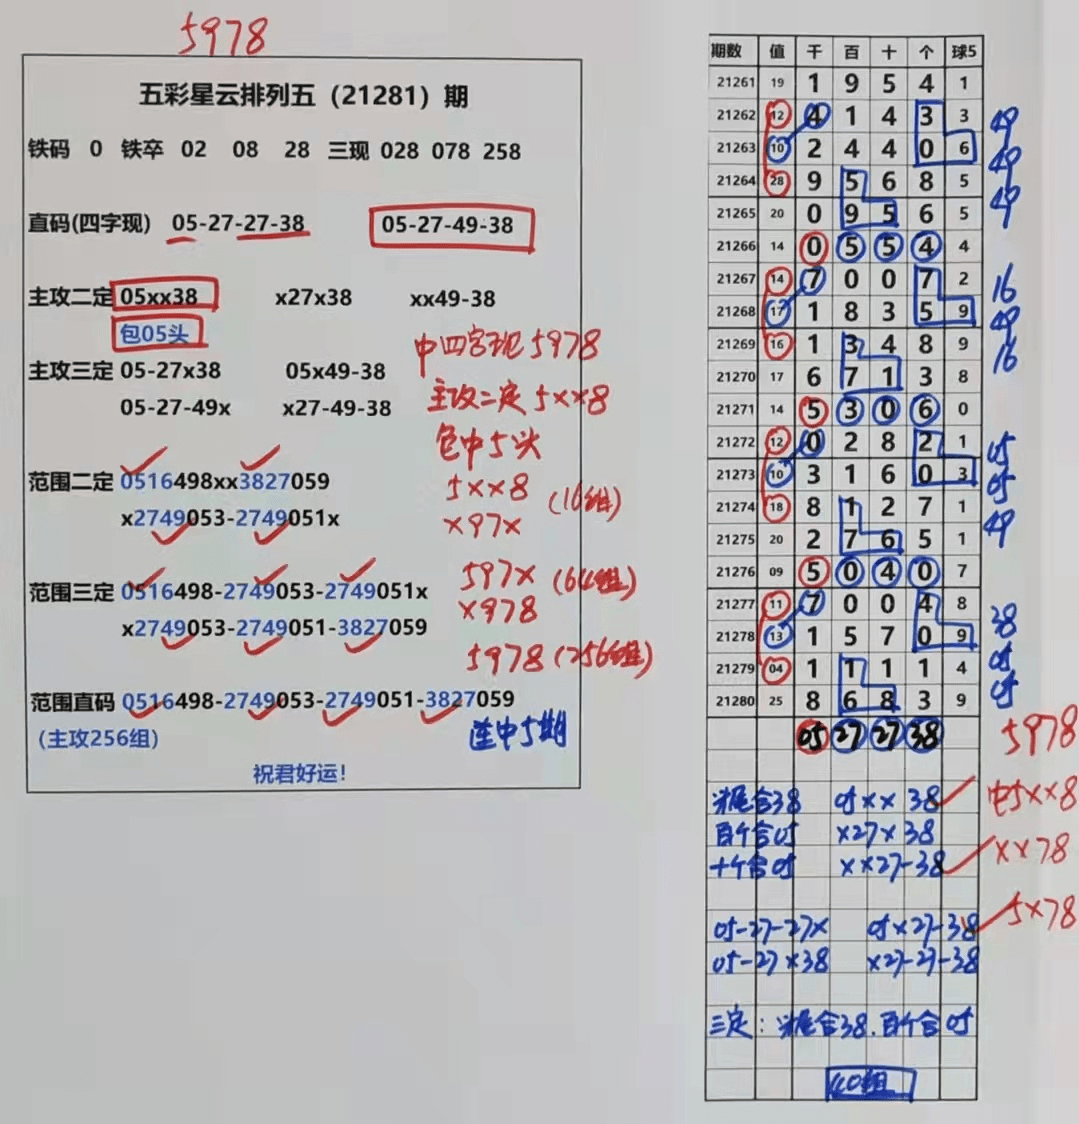 5978
五彩星云排列五（21281）期
铁码 0 铁卒 02 08 28 三现 028 078 258
直码(四字现) 05-27-27-38 05-27-49-38
主攻二定 05xx38 x27x38 xx49-38
包05头
中四字现5978
主攻三定 05-27x38 05x49-38
主攻二定5xx8
05-27-49x x27-49-38
包中5头
范围二定 0516498xx3827059
5xx8
(16组)
x2749053-2749051x
x97x
范围三定 0516498-2749053-2749051x
597x (64组)
x2749053-2749051-3827059
x978
5978 (256组)
范围直码 0516498-2749053-2749051-3827059
(主攻256组)
连中5期
祝君好运!
期数 值 千 百 十 个 球5
21261 19 1 9 5 4 1
21262 12 4 1 4 3 3 49
21263 10 2 4 4 0 6 49
21264 28 9 5 6 8 5 49
21265 20 0 9 5 6 5
21266 14 0 5 5 4 4
21267 14 7 0 0 7 2 16
21268 17 1 8 3 5 9 49
21269 16 1 3 4 8 9 16
21270 17 6 7 1 3 8
21271 14 5 3 0 6 0
21272 12 0 2 8 2 1 05
21273 10 3 1 6 0 3 05
21274 18 8 1 2 7 1 49
21275 20 2 7 6 5 1
21276 09 5 0 4 0 7
21277 11 7 0 0 4 8 38
21278 13 1 5 7 0 9 05
21279 04 1 1 1 1 4 05
21280 25 8 6 8 3 9
05 27 27 38 5978
合38 05xx38 中5xx8
百个合05 x27x38
十个合05 xx27-38 xx78
05-27-27x 05x27-38 5x78
05-27x38 x27-27-38
三定: 合38.百个合05
40组